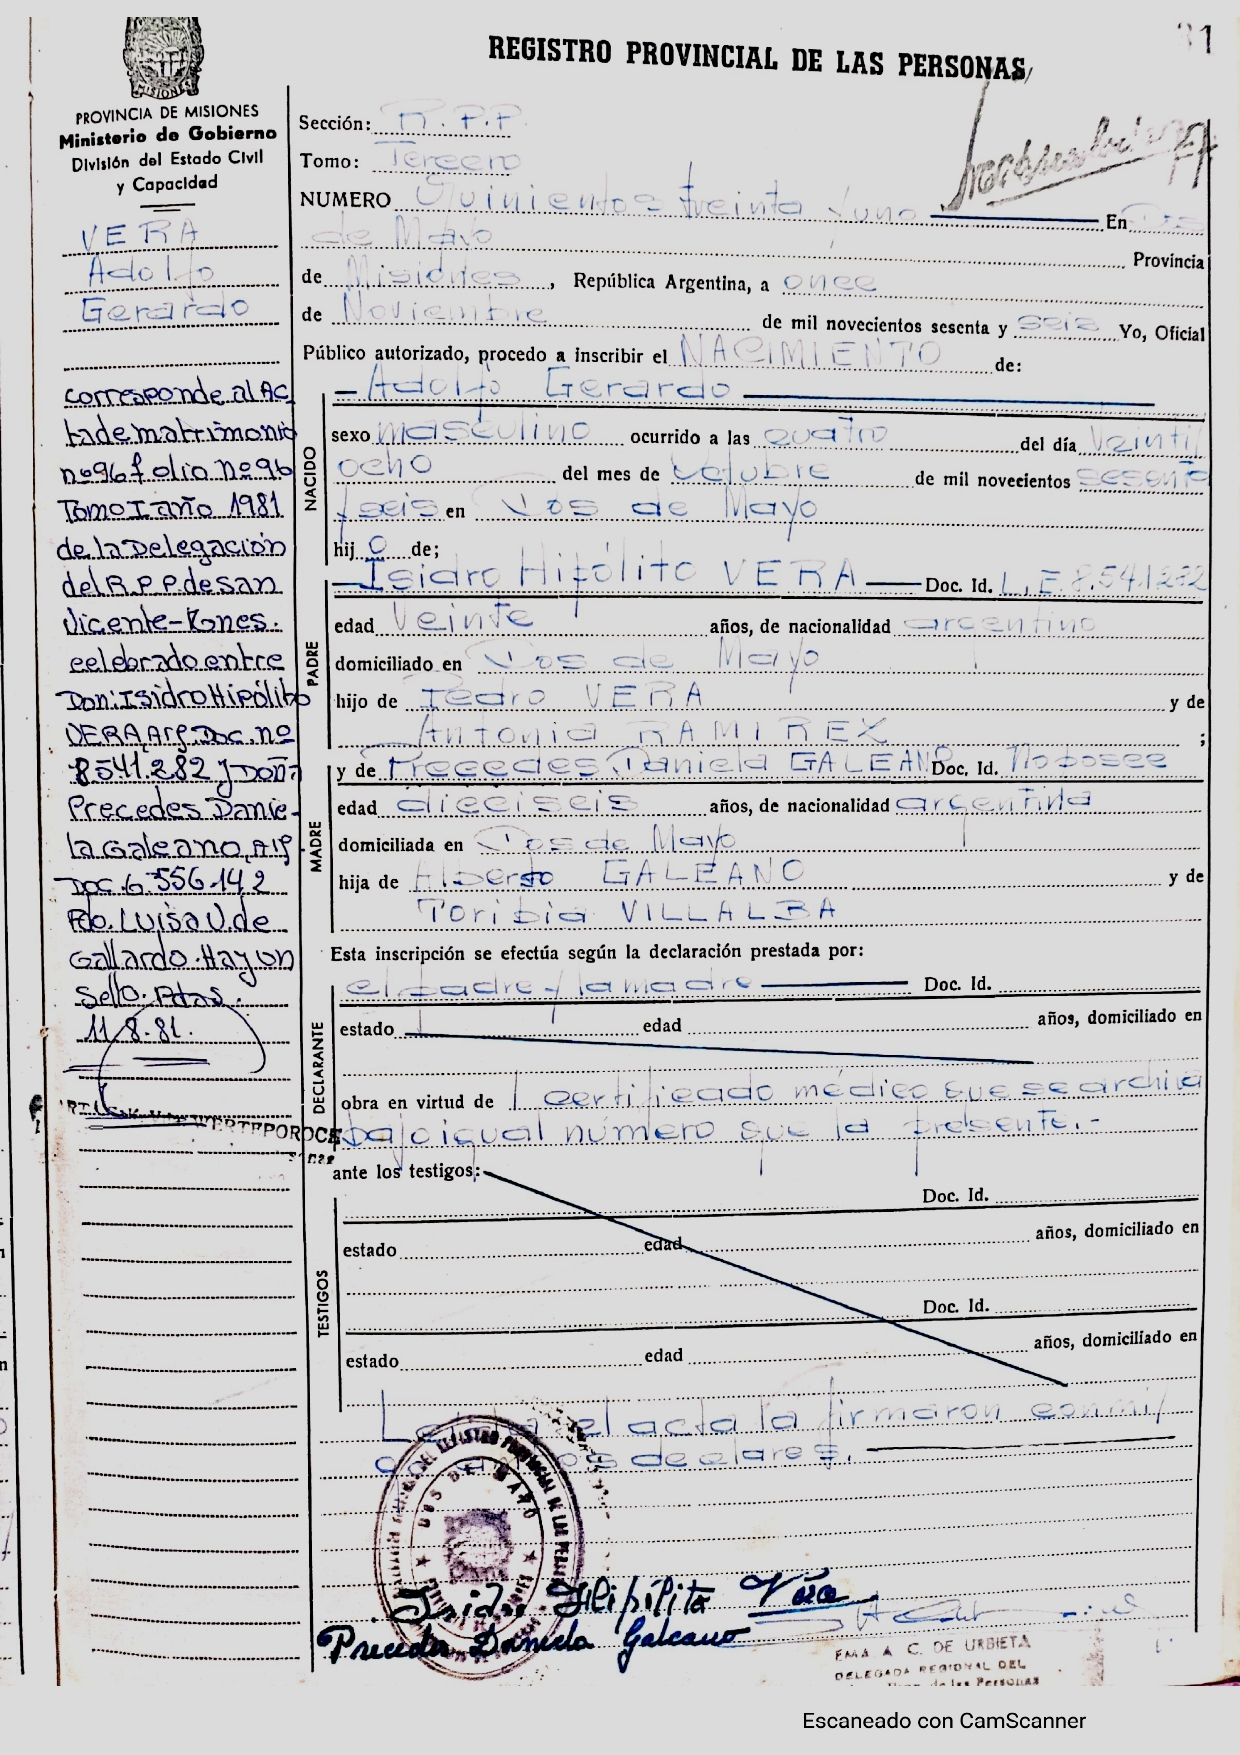 REGISTRO PROVINCIAL DE LAS PERSONAS
31
MISIONES
PROVINCIA DE MISIONES
Ministerio de Gobierno
División del Estado Civil
y Capacidad
VERA
Adolfo
Gerardo
corresponde al AC
ta de matrimonio
nº 96 folio nº 96
Tomo I año 1981
de la Delegación
del R.P.P. de san
Vicente-Kones.
celebrado entre
Don: Isidro Hipólito
VERA, Arg. Doc. nº
8541.282 y Doña
Precedes Danie-
la Galeano, Arg.
Doc. 6.556.142
Fdo. Luisa V. de
Gallardo. Hay un
Sello. Pdas.
11.8.81.
Sección: R.P.P
Tomo: Tercero
NUMERO Quinientos treinta y uno En Dos
de Mayo Provincia
de Misiones, República Argentina, a once
de Noviembre de mil novecientos sesenta y seis Yo, Oficial
Público autorizado, procedo a inscribir el NACIMIENTO de:
- Adolfo Gerardo
NACIDO
sexo masculino ocurrido a las quatro del día Veinti
ocho del mes de Octubre de mil novecientos sesenta
y seis en Dos de Mayo
hij o de;
PADRE
Isidro Hipólito VERA Doc. Id. L.E. 8.541.282
edad Veinte años, de nacionalidad argentino
domiciliado en Dos de Mayo
hijo de Pedro VERA y de
Antonia RAMIREZ ;
MADRE
y de Precedes Daniela GALEANO Doc. Id. No posee
edad dieciseis años, de nacionalidad argentina
domiciliada en Dos de Mayo
hija de Alberto GALEANO y de
Toribia VILLALBA
Esta inscripción se efectúa según la declaración prestada por:
DECLARANTE
el padre y la madre Doc. Id.
estado edad años, domiciliado en
obra en virtud de certificado médico que se archiva
bajo igual número que la presente.-
ante los testigos:
TESTIGOS
Doc. Id.
estado edad años, domiciliado en
Doc. Id.
estado edad años, domiciliado en
el acta la firmaron conmi
declares.
DOS DE MAYO
Isidro Hipólito Vera
Precedes Daniela Galeano
EMA A C. DE URBIETA
DELEGADA REGIONAL DEL
de las Personas
Escaneado con CamScanner